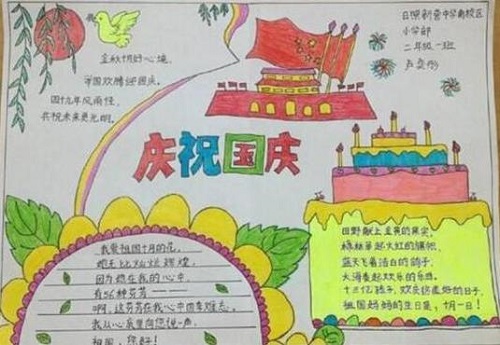 我
金秋十月好心境,
举国欢腾迎国庆。
四九年风雨程,
共祝未来更光明。
日照新营中学南校区
小学部
二年级一班
庆祝国庆
我爱祖国十月的花,
她来比灿烂辉煌,
因为她在我的心中
有56种芬芳——
啊,这芬芳在我心中留恋难忘。
我从心底里向您说一声,
祖国,您好!
田野献上金黄的果实,
枫林举起火红的旗帜,
蓝天飞着洁白的鸽子,
大海奏起欢乐的乐曲,
十三亿孩子,欢庆这美好的日子,
祖国妈妈的生日是,十月一日!